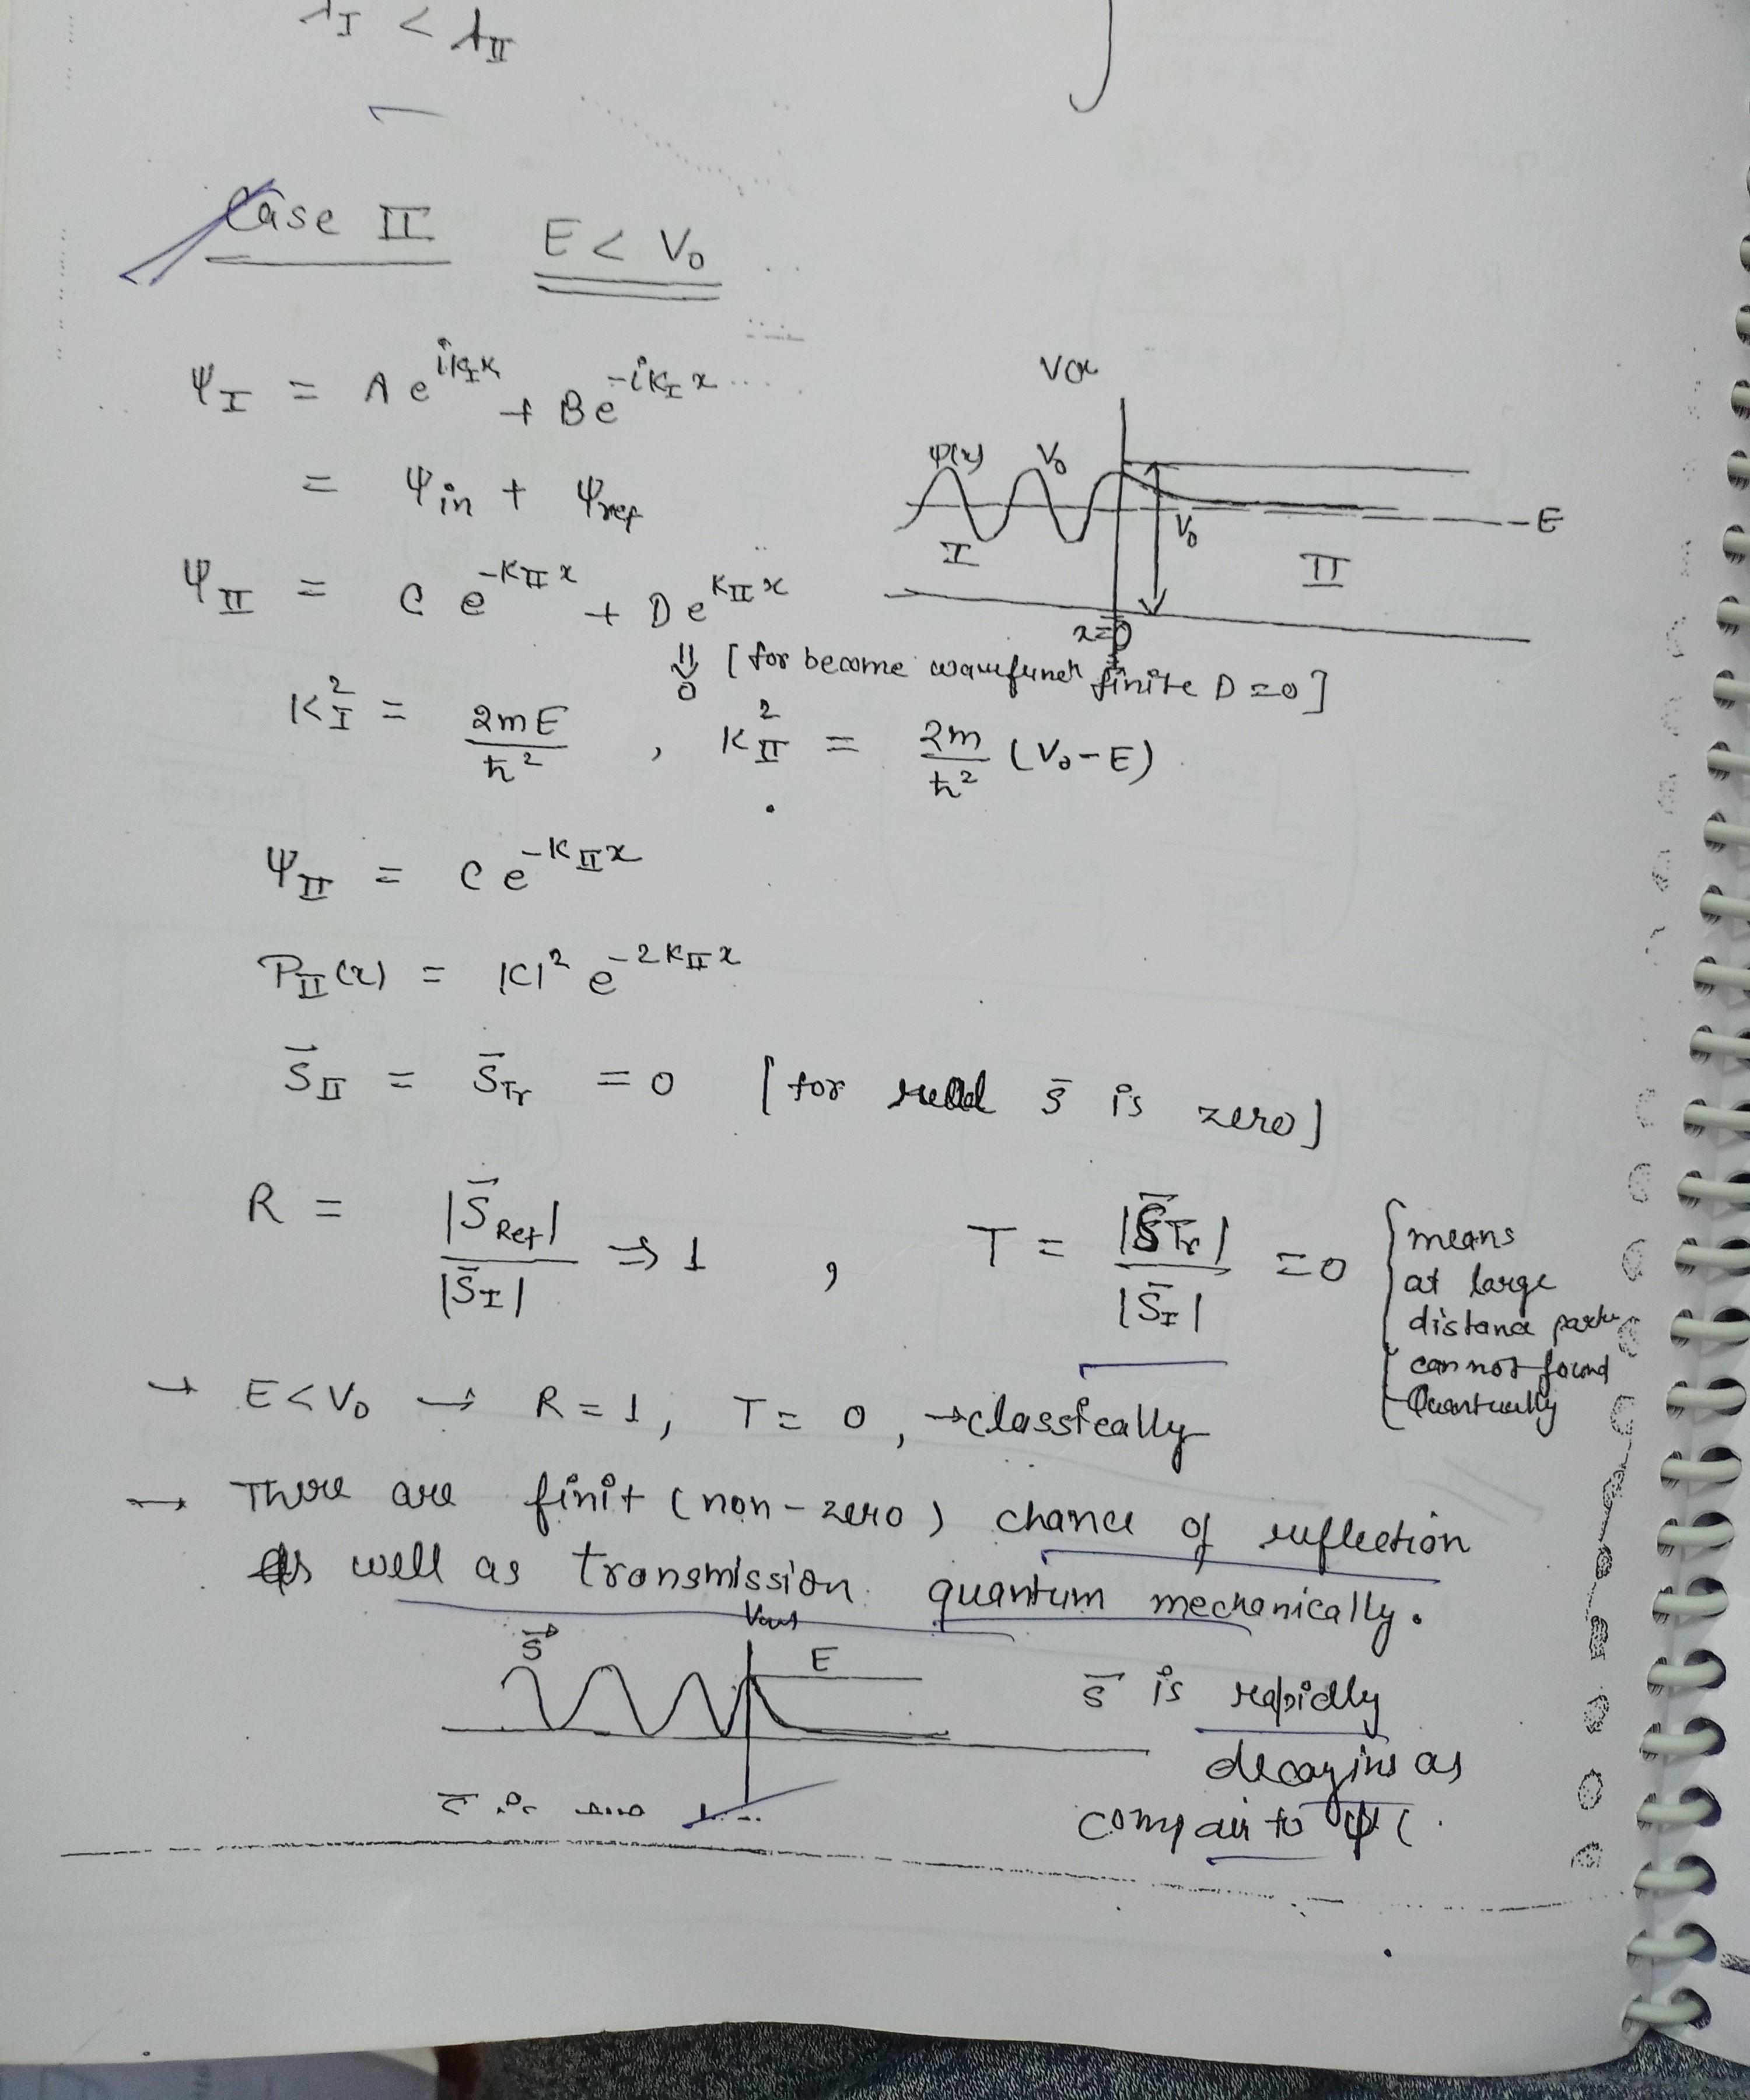 λ_I < λ_II
Case II E < V₀
ψ_I = A e^{iK_I x} + B e^{-iK_I x}
= ψ_in + ψ_ref
ψ_II = C e^{-K_II x} + D e^{K_II x}
⇓ 0 [for become wavefunⁿ finite D = 0]
V(x)
ψ(x) V₀
V₀ E
I II
x=0
K_I² = 2mE/ħ² , K_II² = 2m/ħ² (V₀-E)
ψ_II = C e^{-K_II x}
P_II(x) = |C|² e^{-2K_II x}
S̄_II = S̄_Tr = 0 [for S̄ is zero]
R = |S̄_Ref|/|S̄_I| ⇒ 1 , T = |S̄_Tr|/|S̄_I| = 0
means
at large
distance
can not found
→ E<V₀ → R = 1, T = 0, → classically
→ There are finit (non-zero) chance of reflection
as well as transmission quantum mechanically.
S⃗ E
S̄ is rapidly
decaying as
compair to ψ (